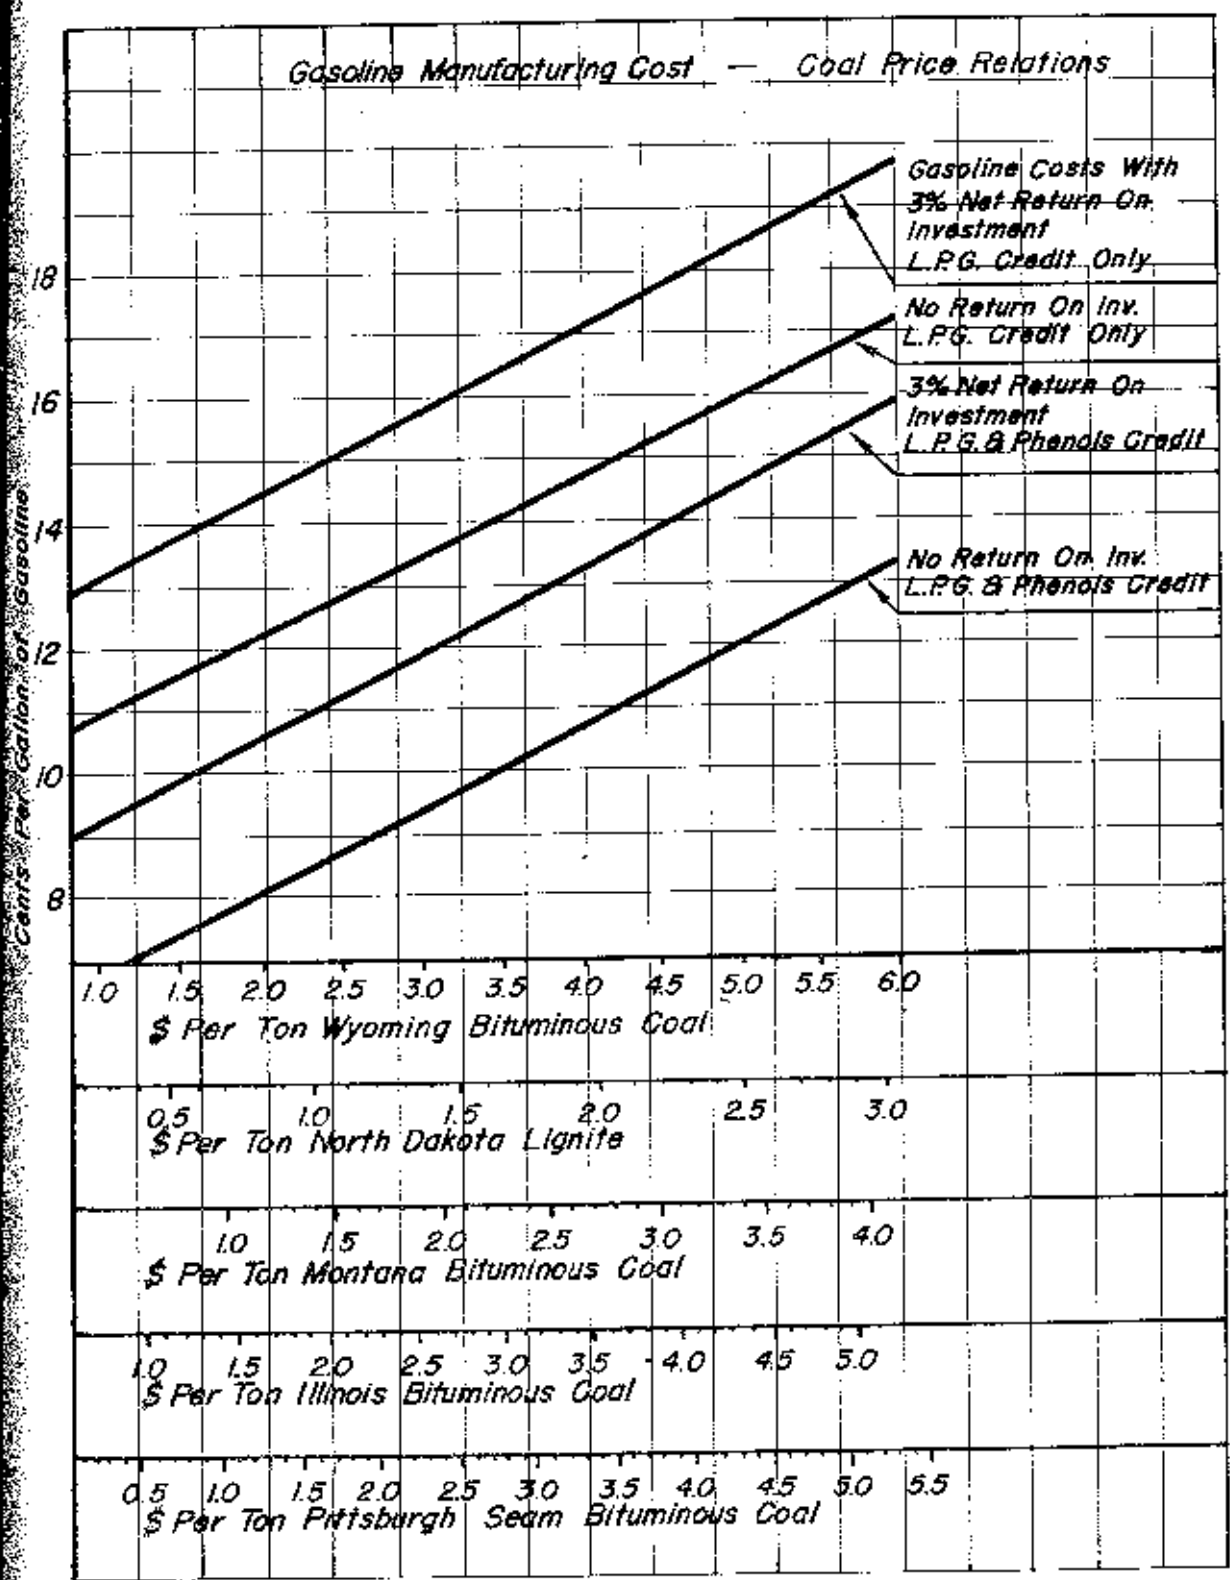 Gasoline Manufacturing Cost — Coal Price Relations
Gasoline Costs With
3% Net Return On
Investment
L.P.G. Credit Only
No Return On Inv.
L.P.G. Credit Only
3% Net Return On
Investment
L.P.G. & Phenols Credit
No Return On Inv.
L.P.G. & Phenols Credit
Cents Per Gallon of Gasoline
18
16
14
12
10
8
1.0 1.5 2.0 2.5 3.0 3.5 4.0 4.5 5.0 5.5 6.0
$ Per Ton Wyoming Bituminous Coal
0.5 1.0 1.5 2.0 2.5 3.0
$ Per Ton North Dakota Lignite
1.0 1.5 2.0 2.5 3.0 3.5 4.0
$ Per Ton Montana Bituminous Coal
1.0 1.5 2.0 2.5 3.0 3.5 4.0 4.5 5.0
$ Per Ton Illinois Bituminous Coal
0.5 1.0 1.5 2.0 2.5 3.0 3.5 4.0 4.5 5.0 5.5
$ Per Ton Pittsburgh Seam Bituminous Coal